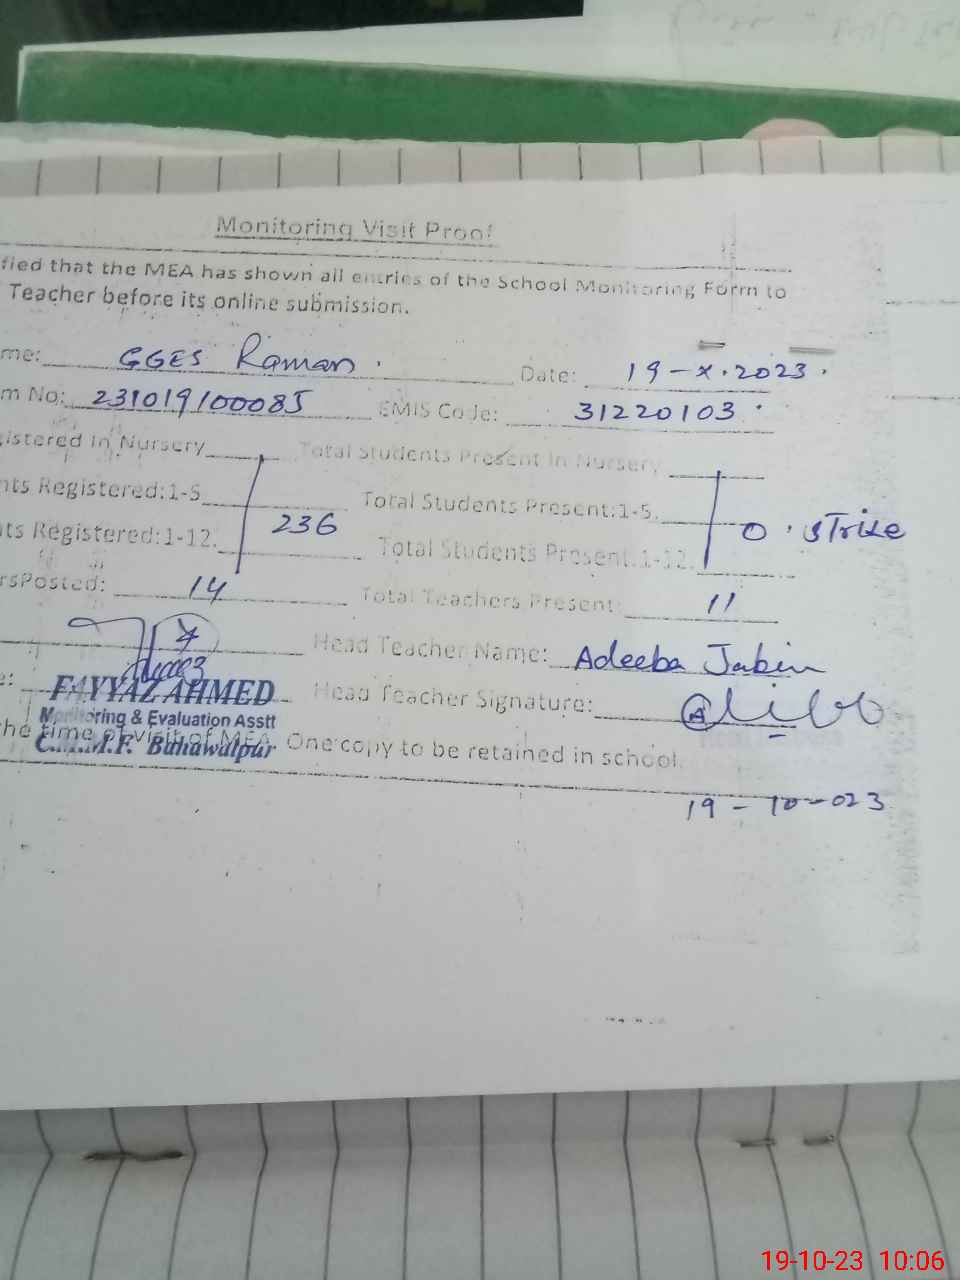 Monitoring Visit Proof
fied that the MEA has shown all entries of the School Monitoring Form to
Teacher before its online submission.
me: GGES Raman. Date: 19-X.2023.
m No: 231019100085 EMIS Code: 31220103
gistered In Nursery Total Students Present In Nursery
nts Registered:1-5 Total Students Present:1-5.
236 0. strike
ts Registered:1-12. Total Students Present:1-12.
rsPosted: 14 Total Teachers Present: 11
Head Teacher Name: Adeeba Jabin
e: FAYYAZ AHMED Head Teacher Signature:
Monitoring & Evaluation Asstt
the time of visit of MEA. One copy to be retained in school.
Bahawalpur
19-10-023
19-10-23 10:06